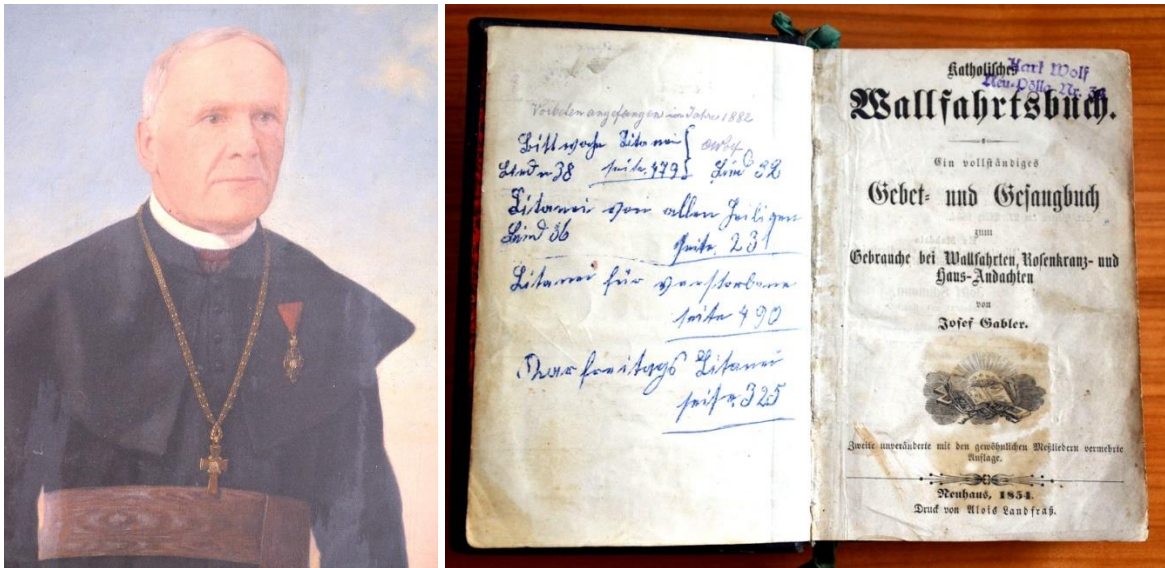 Vorbeten angefangen im Jahre 1882
Bittwoche Litanei
Lied 38 seite 479 Lied 32
Litanei von allen Heiligen
Lied 36 Seite 231
Litanei für verstorbene
seite 490
Karfreitags Litanei
seite 325
Karl Wolf
Neu-Pölla Nr.
Katholisches
Wallfahrtsbuch.
Ein vollständiges
Gebet- und Gesangbuch
zum
Gebrauche bei Wallfahrten, Rosenkranz- und
Haus-Andachten
von
Josef Gabler.
Zweite unveränderte mit den gewöhnlichen Meßliedern vermehrte
Auflage.
Neuhaus, 1854.
Druck von Alois Landfraß.